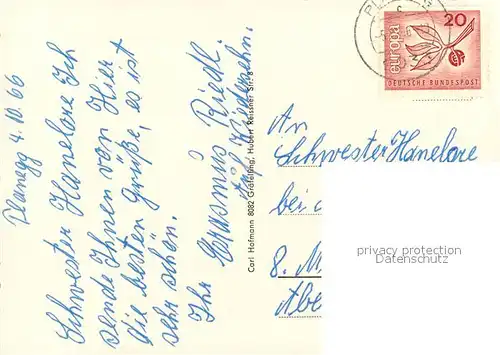 Planegg 4.10.66
Schwester Hanelore Ich
sende Ihnen von Hier
die besten Grüße, es ist
sehr schön.
Ihr Erasmus Riedl.
Carl Hofmann 8082 Gräfelfing, Hubert Reissner Str. 8
europa
20
DEUTSCHE BUNDESPOST
An
Schwester Hanelore
bei
8. M
Abe
privacy protection
Datenschutz